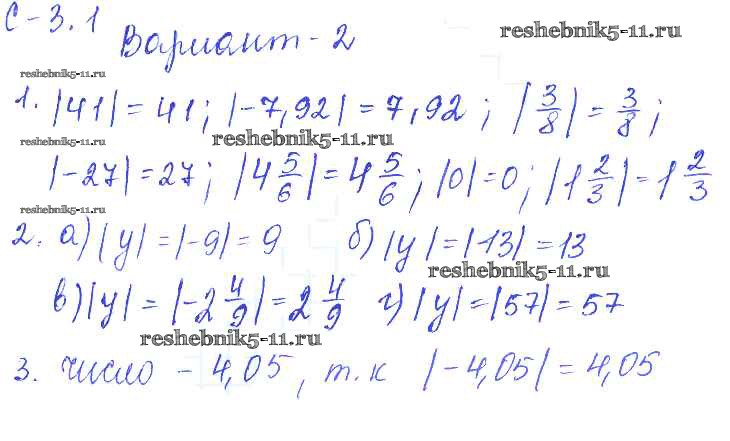 С-3.1
Вариант-2
reshebnik5-11.ru
reshebnik5-11.ru
1. |41| = 41; |-7,92| = 7,92; |3/8| = 3/8;
reshebnik5-11.ru
reshebnik5-11.ru
|-27| = 27; |4 5/6| = 4 5/6; |0| = 0; |1 2/3| = 1 2/3
reshebnik5-11.ru
2. а) |y| = |-9| = 9 б) |y| = |-13| = 13
reshebnik5-11.ru
в) |y| = |-2 4/9| = 2 4/9 г) |y| = |57| = 57
reshebnik5-11.ru
3. число - 4,05, т.к |-4,05| = 4,05